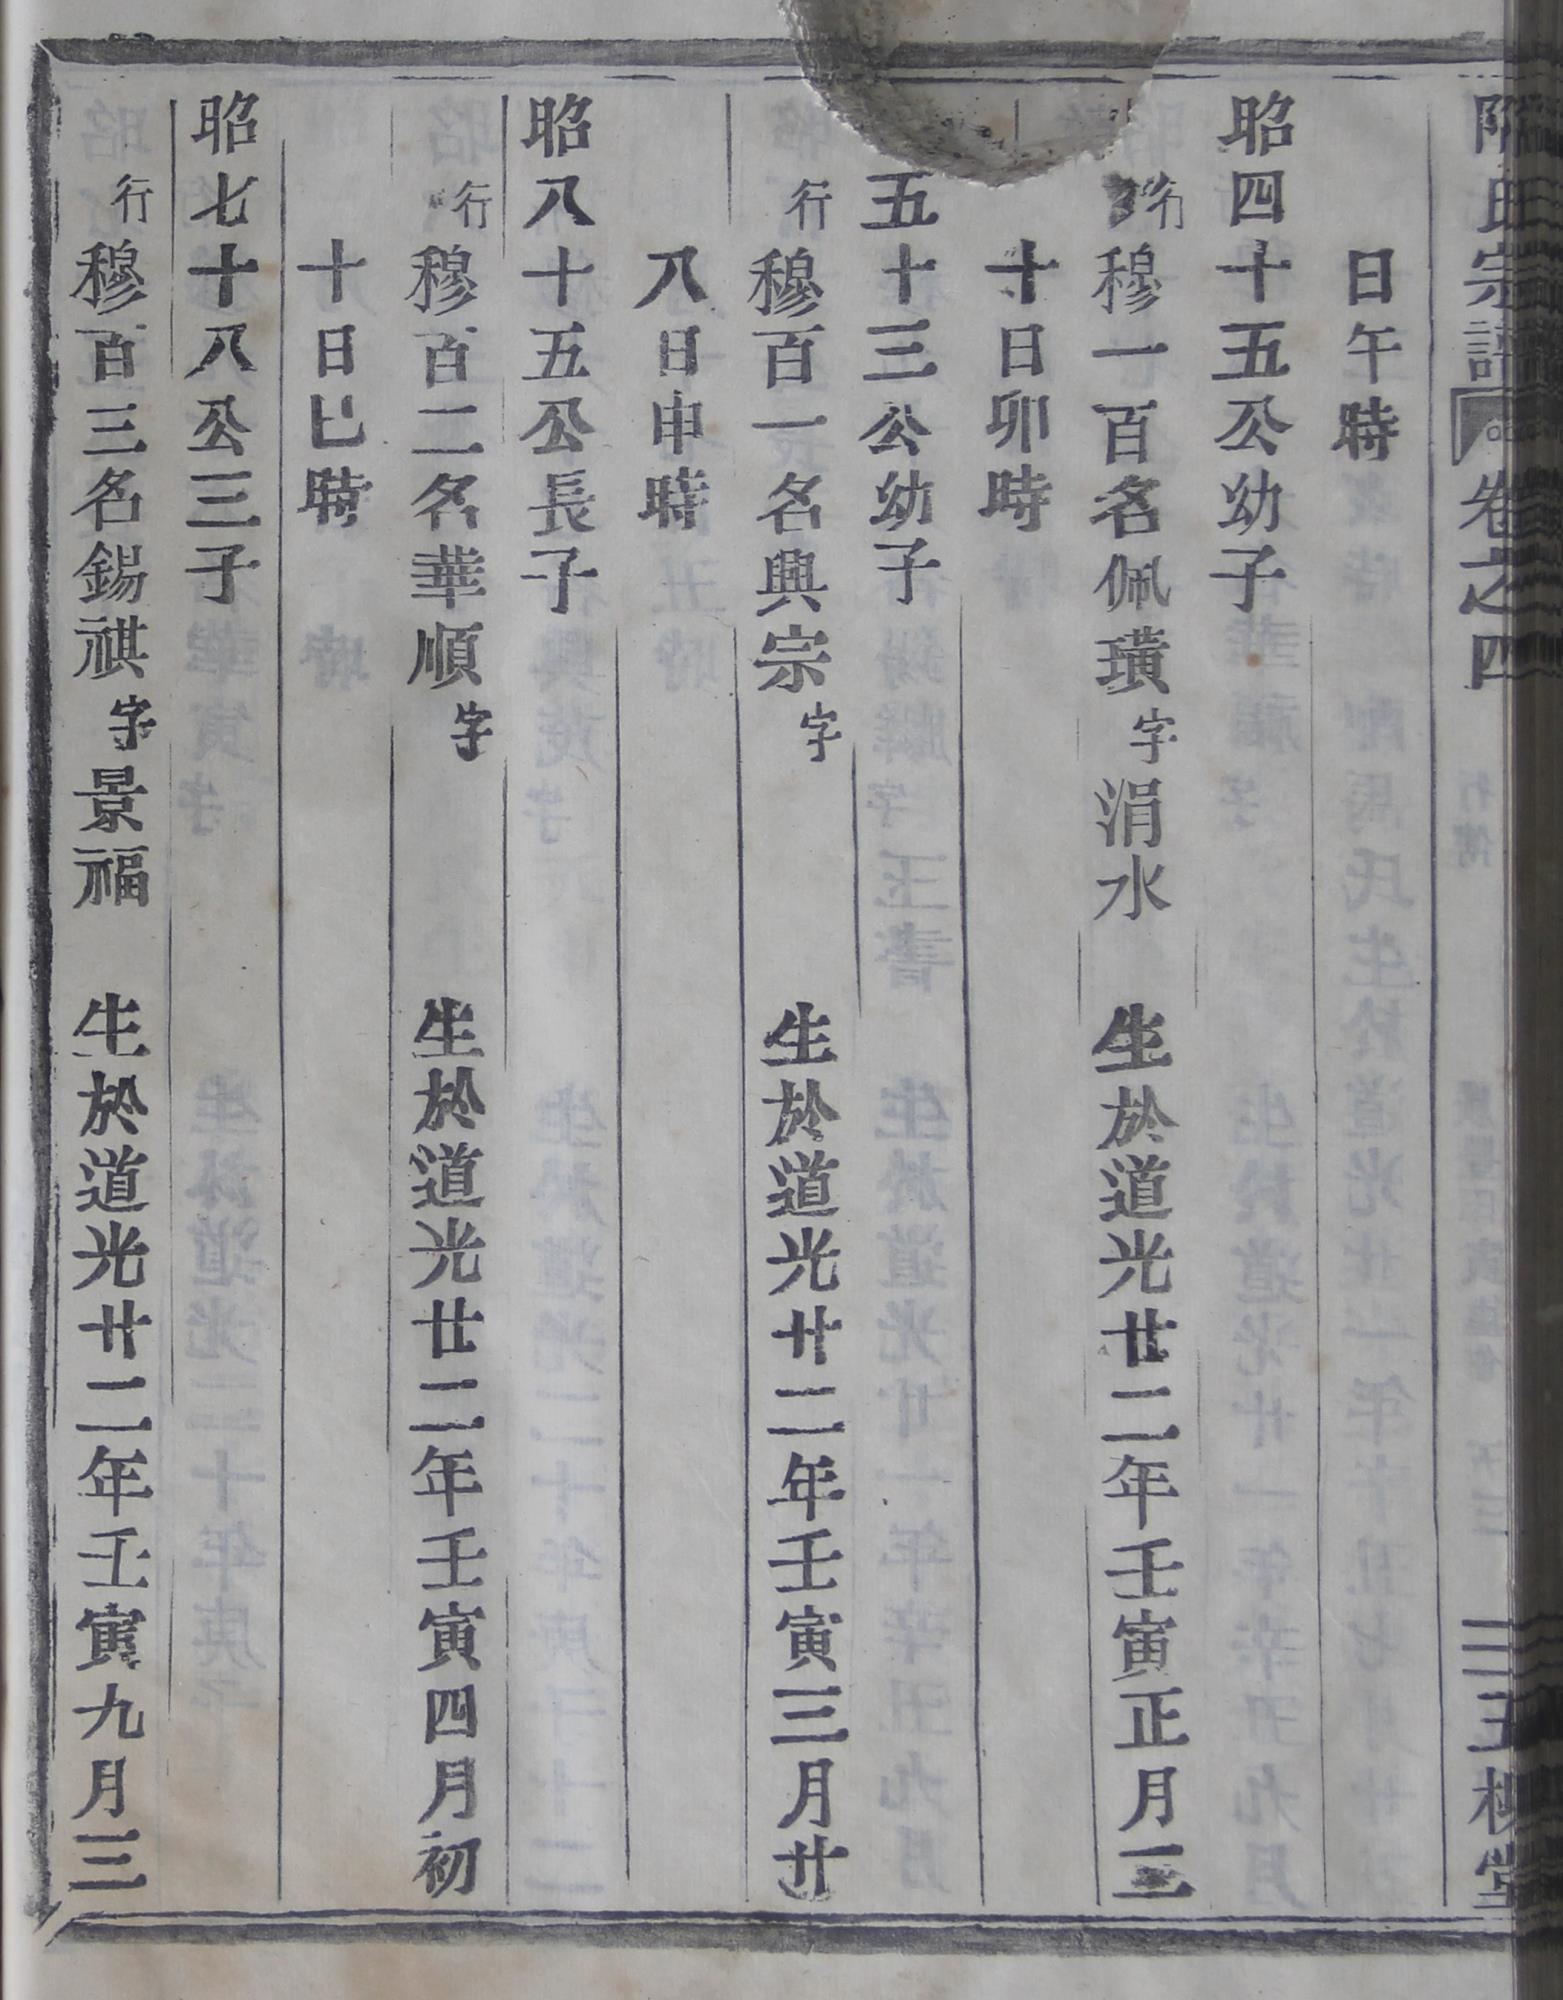 氏宗譜 卷之四 三五 槐堂
日午時
昭四十五公幼子
行穆一百名佩璜字涓水 生於道光廿二年壬寅正月三
十日卯時
五十三公幼子
行穆百一名興宗字 生於道光廿二年壬寅三月廿
八日申時
昭八十五公長子
行穆百二名華順字 生於道光廿二年壬寅四月初
十日巳時
昭七十八公三子
行穆百三名錫祺字景福 生於道光廿二年壬寅九月三